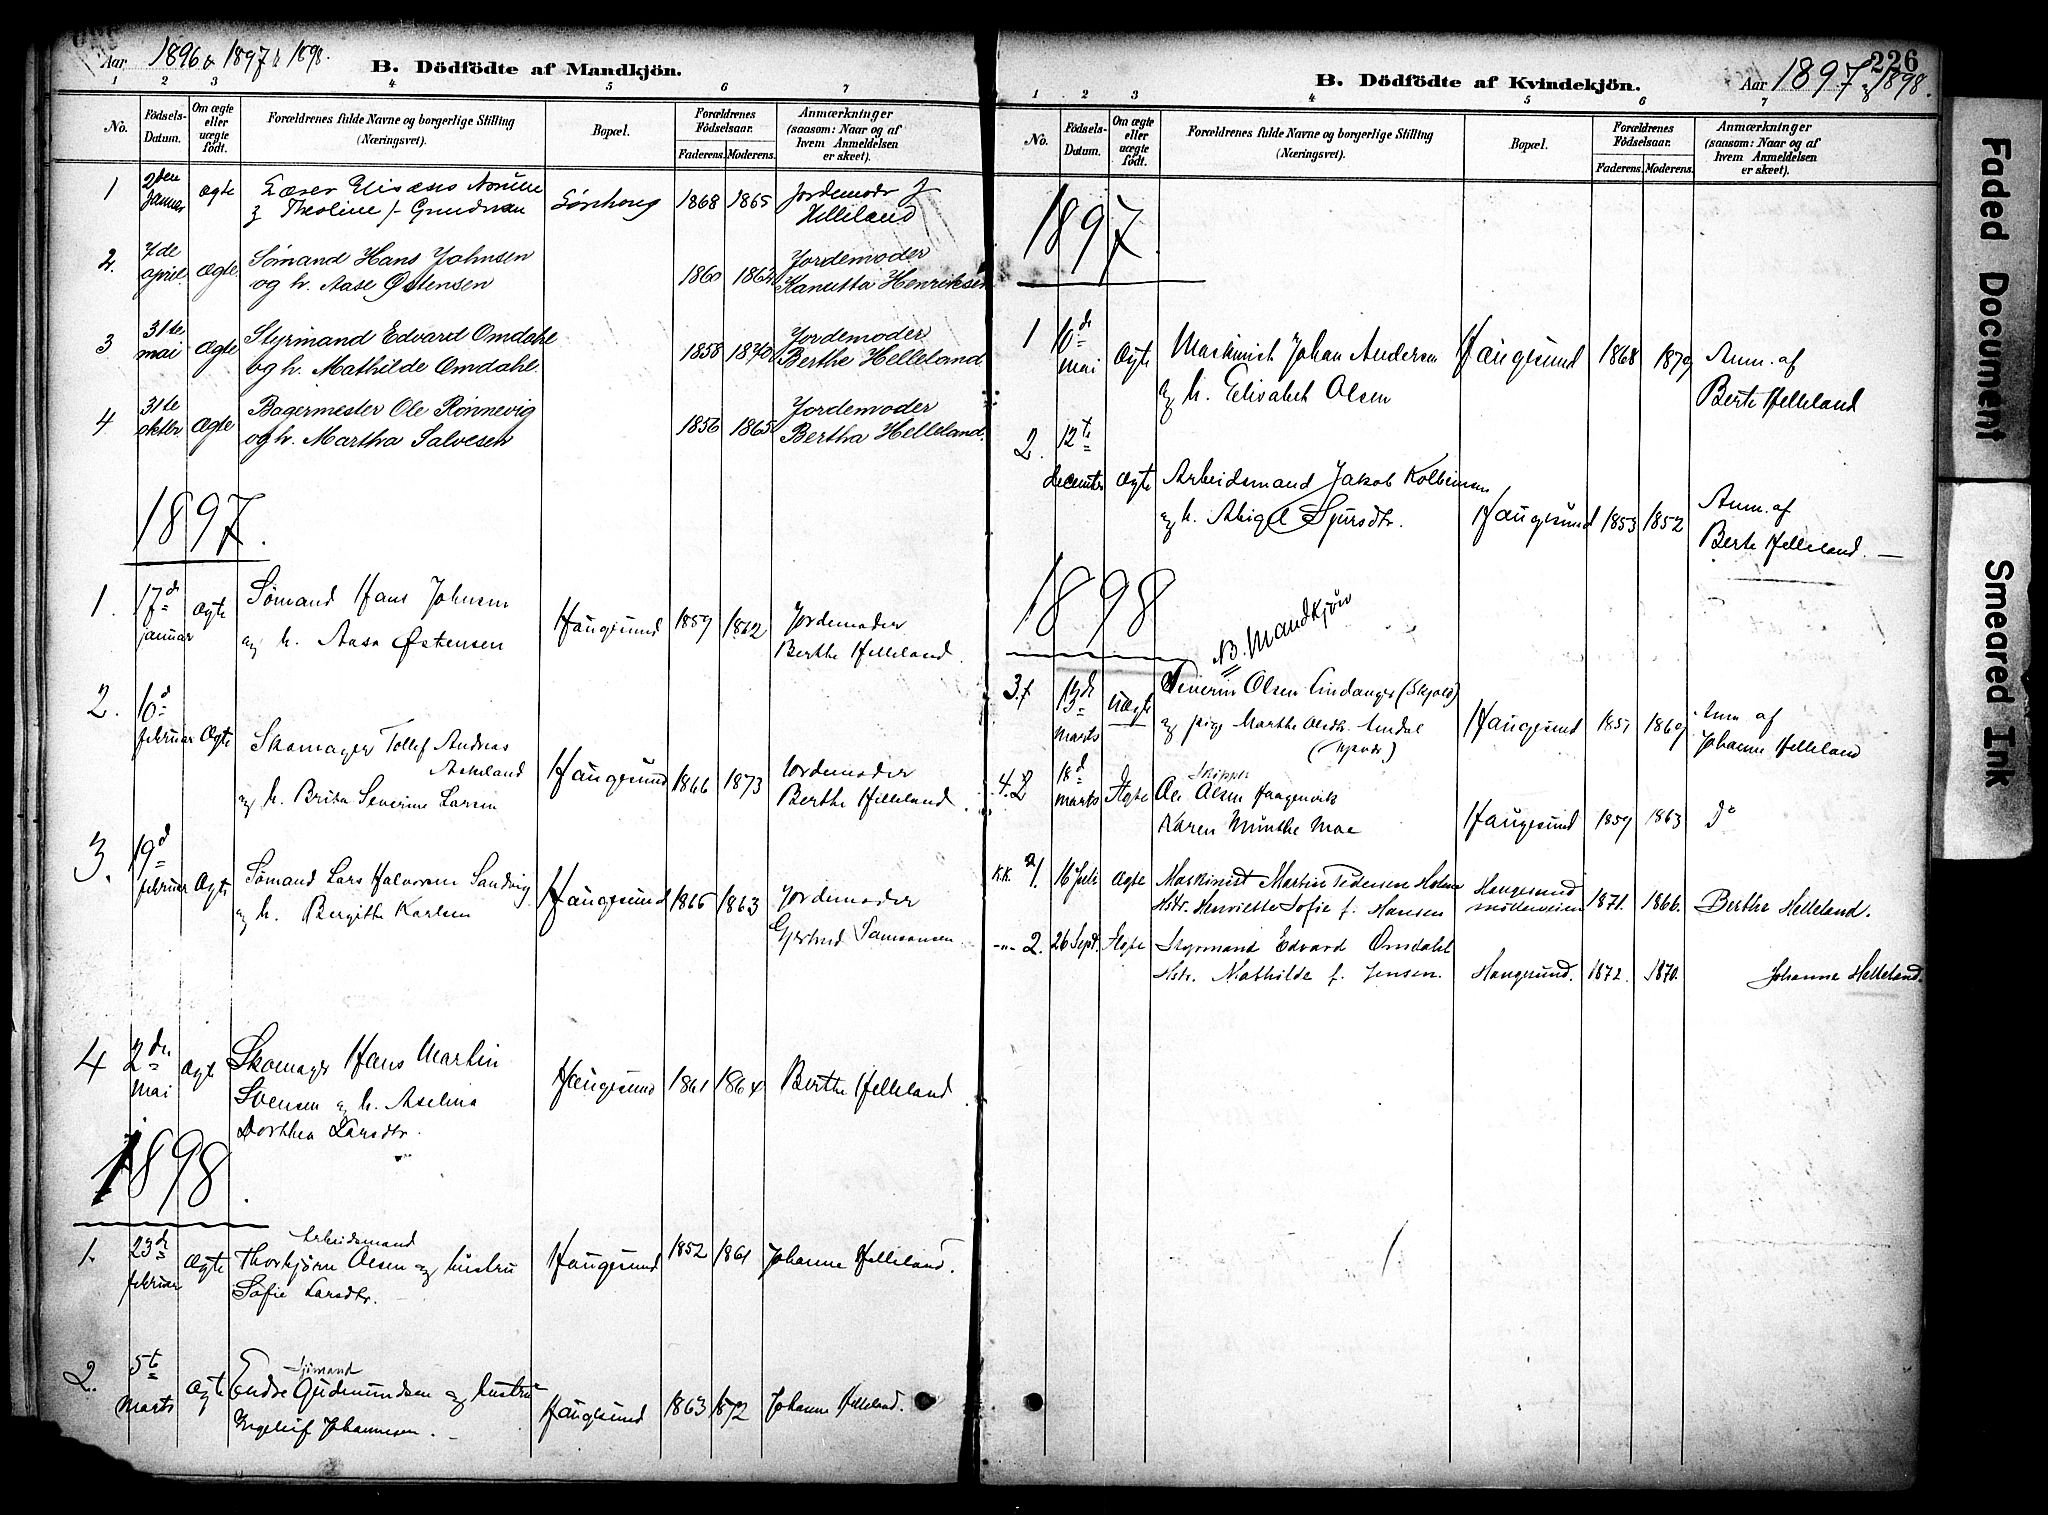 Aar 1896 & 1897 & 1898.
B. Dödfödte af Mandkjön.
1 2 3 4 5 6 7
No.
Födsels-
Datum.
Om ægte
eller
uægte
födt.
Forældrenes fulde Navne og borgerlige Stilling
(Næringsvei).
Bopæl.
Forældrenes
Födselsaar.
Faderens. Moderens.
Anmærkninger
(saasom: Naar og af
hvem Anmeldelsen
er skeet).
1 2den Januar ægte
Theoline
1868 1865 Jordemodr J
Helleland
2. 7de april ægte Sømand Hans Johnsen
og h. Aase Østensen
1860 1862 Jordemoder
Kanutta Henriksen
3 31te mai ægte Styrmand Edvard Omdahl
og h. Mathilde Omdahl.
1858 1870 Jordemoder
Berthe Helleland
4 31te oktbr ægte Bagermester Ole Rönnevig
og h. Martha Salvesen
1856 1865 Jordemoder
Bertha Helleland.
1897.
1. 17d januar Ægte Sømand Hans Johnsen
og h. Aasa Østensen
Haugesund 1859 1862 Jordemoder
Berthe Helleland.
2. 16d februar Ægte Skomager Tollef Andreas
Askeland
og h. Brita Severine Larsen
Haugesund 1866 1873 Jordemoder
Berthe Helleland.
3. 19d februar Ægte Sømand Lars Halvorsen Sandvig
og h. Bergithe Karlsen
Haugesund 1866 1863 Jordemoder
Gjertrud Samsonsen
4 2den Mai Ægte Skomager Hans Martin
Svensen og h. Aselina
Dorthea Larsdtr.
Haugesund 1861 1864 Berthe Helleland.
1898.
1. 23de februar Ægte Arbeidsmand
Thorbjørn Olsen og hustru
Sofie Larsdtr.
Haugesund 1852 1861 Johanne Helleland.
2. 5t Marts Ægte Sjømand
Endre Gudmundsen og hustru
Ingeleif Johannesen.
Haugesund 1863 1872 Johanne Helleland.
226
B. Dödfödte af Kvindekjön.
Aar 1897 & 1898.
1 2 3 4 5 6 7
No.
Födsels-
Datum.
Om ægte
eller
uægte
födt.
Forældrenes fulde Navne og borgerlige Stilling
(Næringsvei).
Bopæl.
Forældrenes
Födselsaar.
Faderens. Moderens.
Anmærkninger
(saasom: Naar og af
hvem Anmeldelsen
er skeet).
1897.
1 10de mai Ægte Maskinist Johan Andersen
og h. Elisabet Olsen
Haugesund 1868 1870 Anm. af
Berte Helleland
2. 12te december Ægte Arbeidsmand Jakob Kolbeinsen
og h. Abigel Sjursdtr.
Haugesund 1853 1852 Anm. af
Berte Helleland.
1898
NB. Mandkjön
3. 13de Marts Uægte Severin Olsen Lindanger (Skjold)
og pige Marthe Olsdtr.
Haugesund 1860 Anm af
Johanne Helleland
4. 18d Marts Ægte Skipper
Ole Olsen Haugenvik
Karen Munthe Moe
Haugesund 1859 1863 Do
K.K. 1. 16 Juli Ægte Maskinist Martin Pedersen Holme
Hstr. Henriette Sofie f. Hansen
Haugesund
Mølleveien
1871. 1866. Berthe Helleland.
-"- 2. 26 Sept. Ægte Styrmand Edvard Omdahl
Hstr. Mathilde f. Jensen.
Haugesund. 1872. 1870. Johanne Helleland.
Faded Document
Smeared Ink